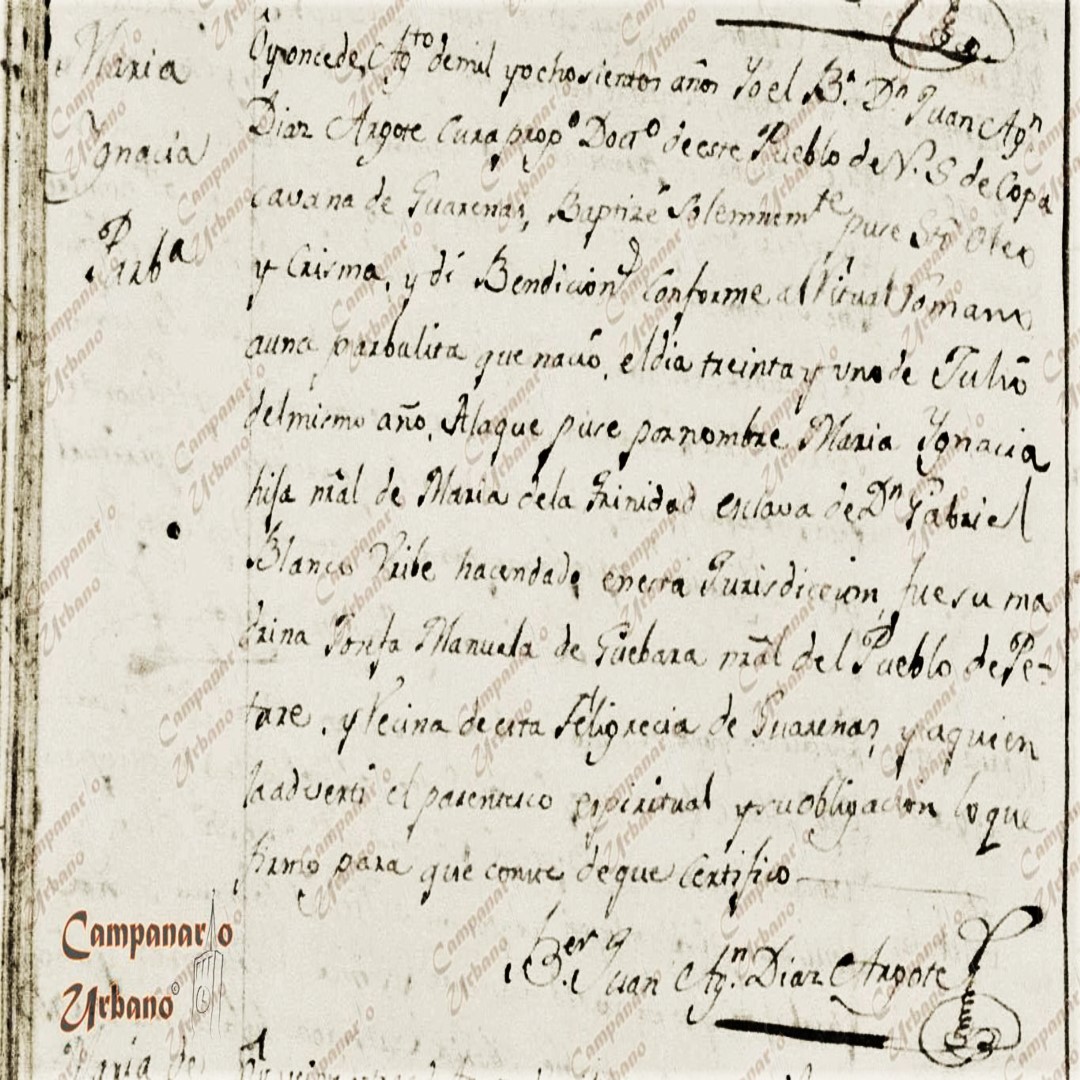 Maria
Ygnacia
Parbª
Oy once de Agto de mil y ochosientos años Yo el Br. Dn Juan Agn
Diaz Argote Cura propº Doctº de este Pueblo de N. S de Copa
cavana de Guarenas, Baptizé Solemnemte puse Sto Oleo
y Crisma, y dí Bendicions conforme al Ritual Romano
auna parbulita que nació, el dia treinta y uno de Julio
del mismo año, Alaque puse por nombre Maria Ygnacia
hija nral de Maria dela Trinidad esclava de Dn Gabriel
Blanco Uribe hacendado en esta Jurisdiccion, fue su ma
drina Josefa Manuela de Guebara nral del Pueblo de Pe-
tare, y Vecina de esta Feligrecia de Guarenas, y aquien
la adverti el parentesco espiritual y su obligacion lo que
firmo para que conste de que Certifico
Br. Juan Agn. Diaz Argote
Campanario
Urbano©
Maria de